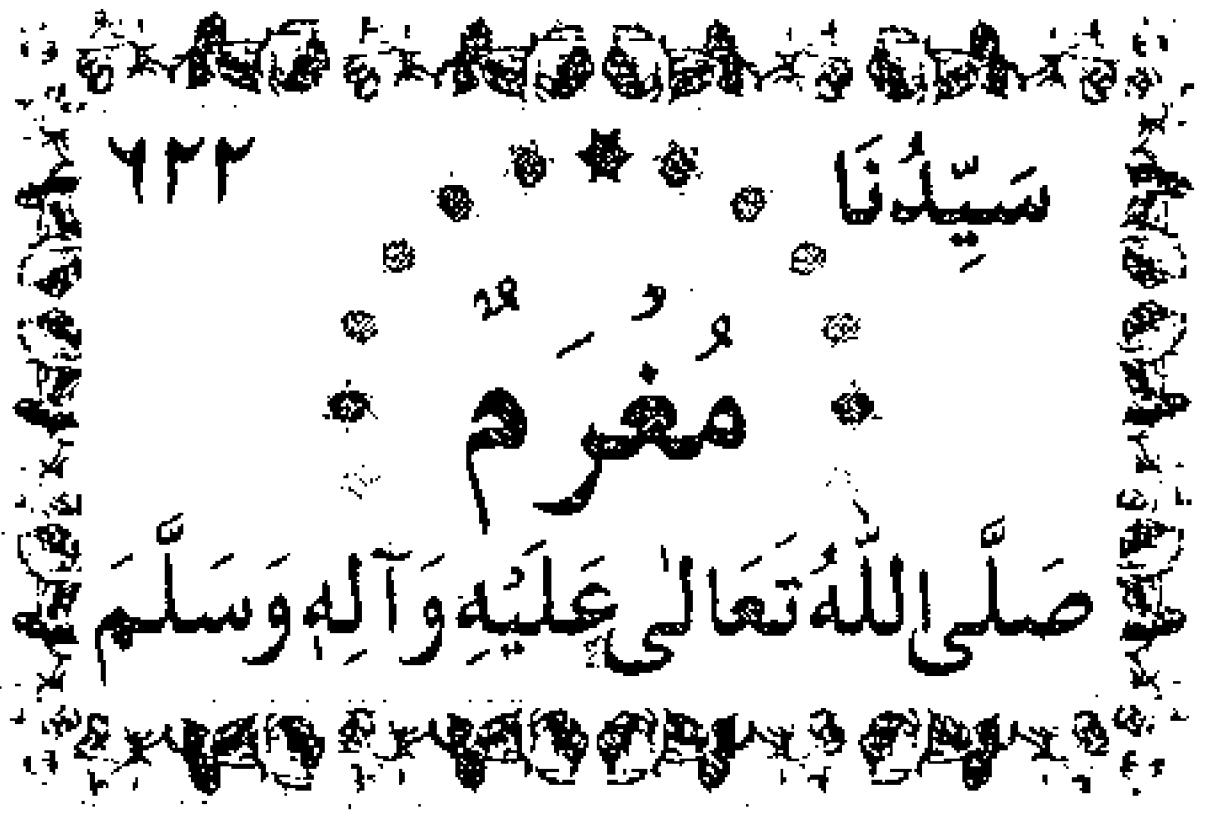 سَيِّدُنَا ٦٢٢
مُغْرَمٌ
صَلَّى اللّٰهُ تَعَالٰى عَلَيْهِ وَآلِهٖ وَسَلَّمَ